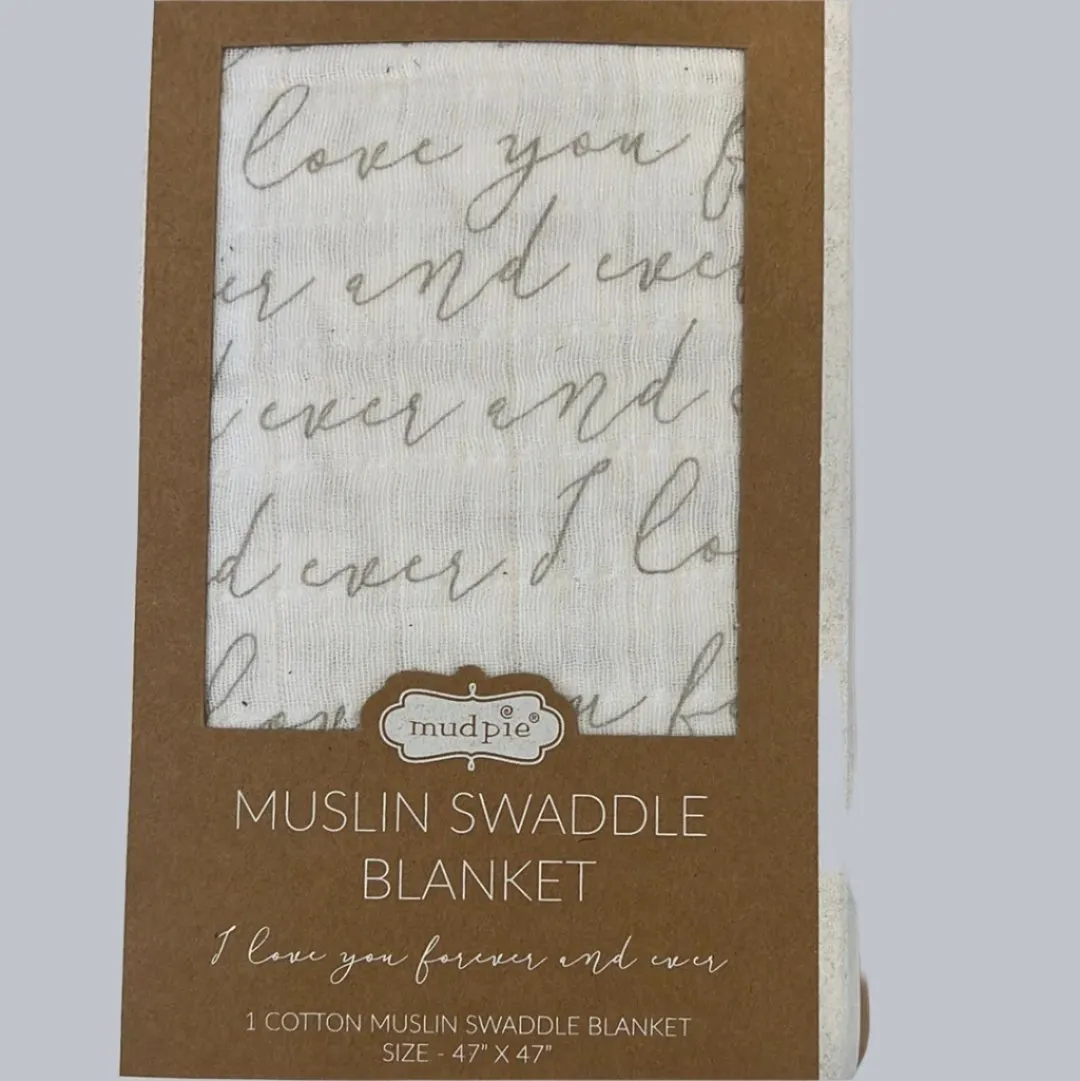 love you f
er and ever
d ever and
d ever. I lo
lov u fo
mudpie®
MUSLIN SWADDLE
BLANKET
I love you forever and ever
1 COTTON MUSLIN SWADDLE BLANKET
SIZE - 47" X 47"